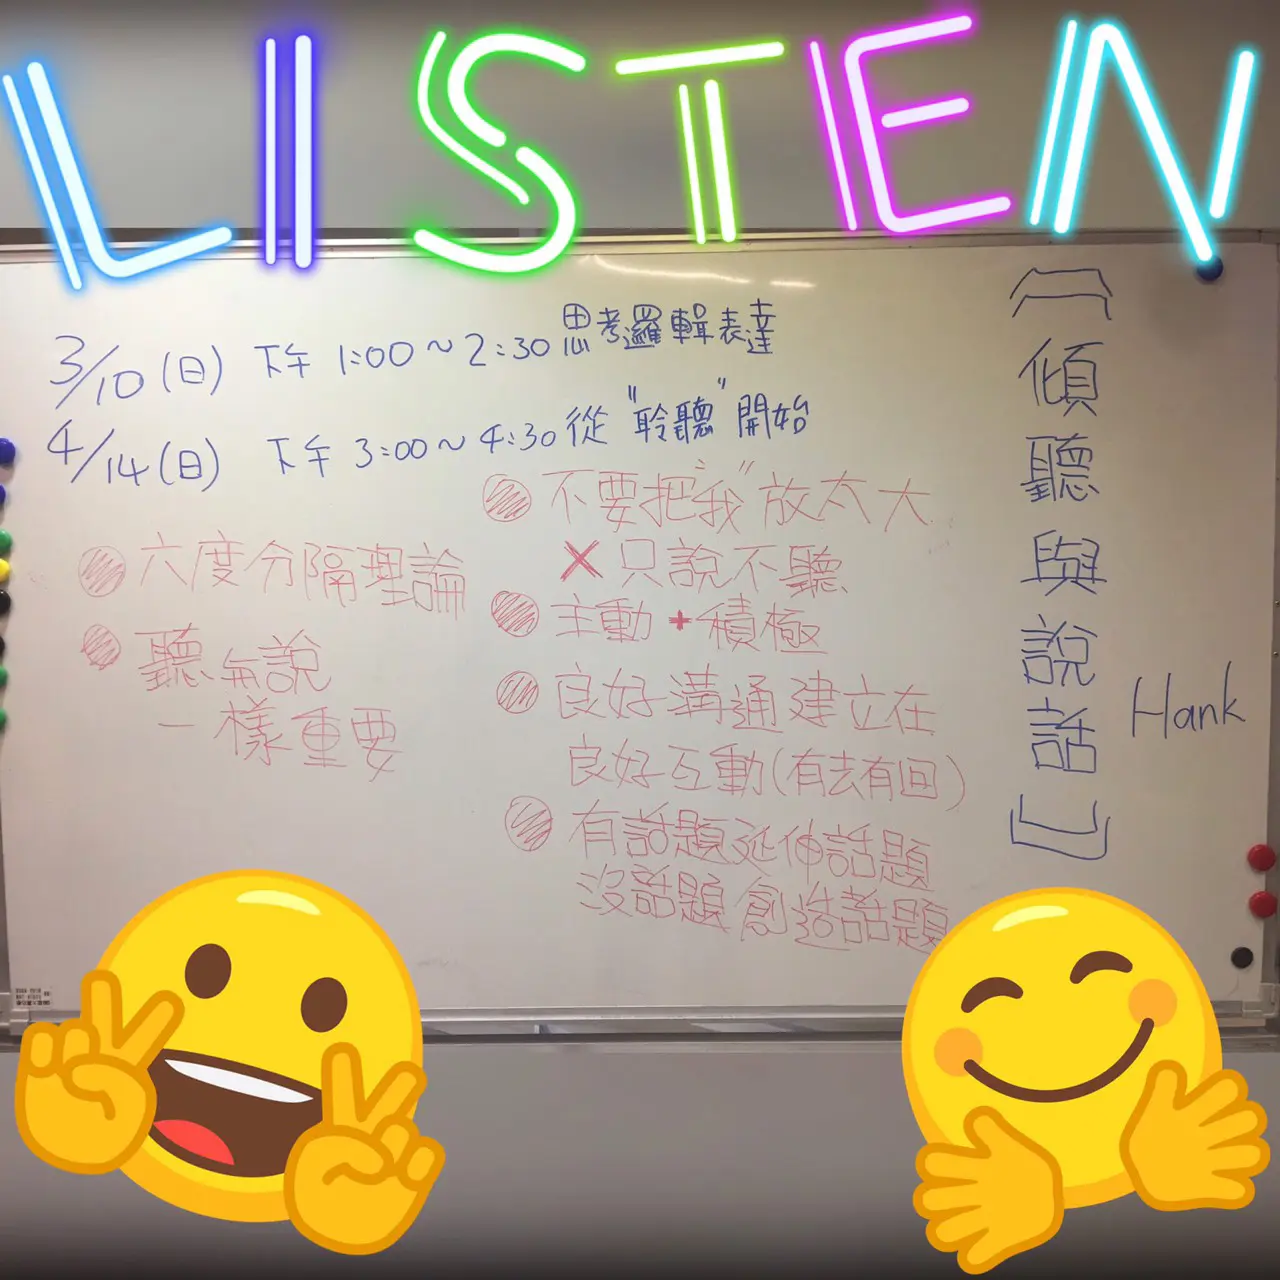 LISTEN
3/10(日) 下午 1:00~2:30 思考邏輯表達
4/14(日) 下午 3:00~4:30 從"聆聽"開始
六度分隔理論
聽與說
一樣重要
不要把"我"放太大
✗只說不聽
主動+積極
良好溝通建立在
良好互動(有去有回)
有話題延伸話題
沒話題創造話題
【傾聽與說話】
Hank